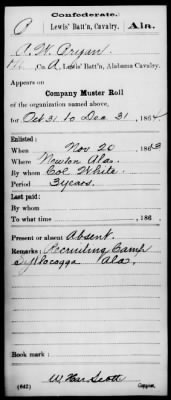 Confederate.
P Lewis' Batt'n, Cavalry. Ala.
A. W. Pryan
Co. A, Lewis' Batt'n, Alabama Cavalry.
Appears on
Company Muster Roll
of the organization named above,
for Oct 31 to Dec 31, 1864
Enlisted:
When Nov 20, 1863
Where Newton Ala.
By whom Col. White
Period 3 years.
Last paid:
By whom
To what time , 186
Present or absent Absent
Remarks: Recruiting Camp
Ala.
Book mark:
Scott
(642) Copyist.